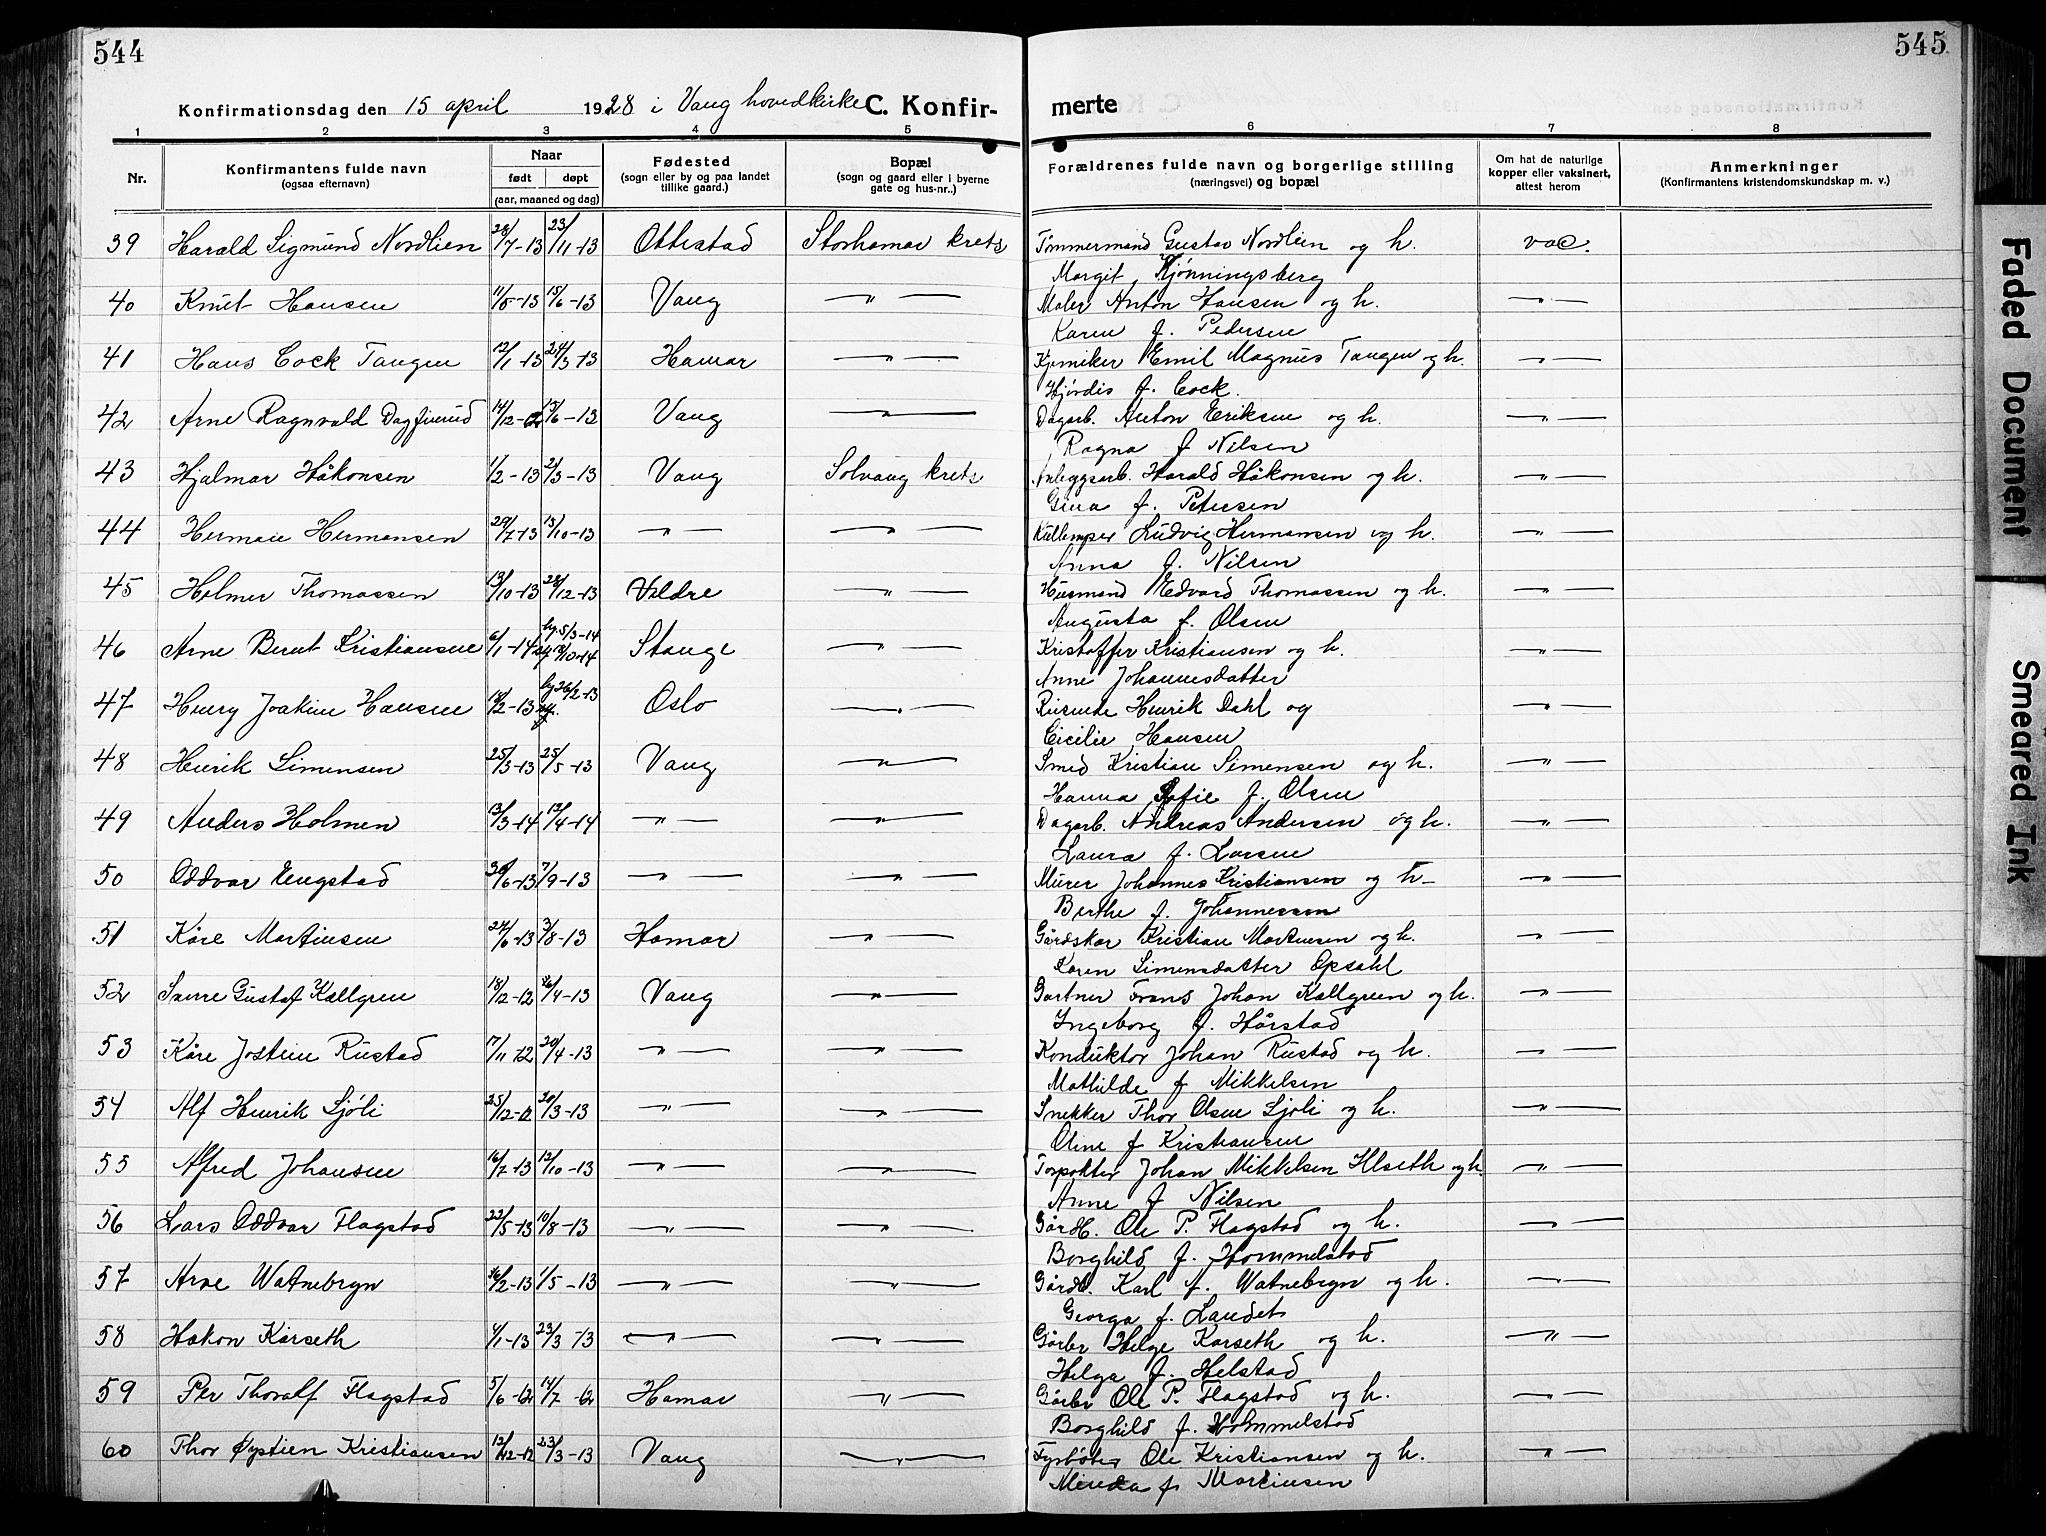 544
545
Konfirmationsdag den 15 april 1928 i Vang hovedkirke C. Konfir-
merte
1 2 3 4 5 6 7 8
Nr. Konfirmantens fulde navn (ogsaa efternavn) Naar født døpt (aar, maaned og dag) Fødested (sogn eller by og paa landet tillike gaard.) Bopæl (sogn og gaard eller i byerne gate og hus-nr..) Forældrenes fulde navn og borgerlige stilling (næringsvei) og bopæl Om hat de naturlige kopper eller vaksinert, attest herom Anmerkninger (Konfirmantens kristendomskundskap m. v.)
39 Harald Sigmund Nordlien 28/7-13 23/11-13 Ottestad Storhamar krets Tømmermand Gustav Nordlien og h. vac.
Margit Kjønningsberg
40 Knut Hansen 11/5-13 15/6-13 Vang —"— Maler Anton Hansen og h. —"—
Karen f. Pedersen
41 Hans Cock Tangen 12/1-13 24/3-13 Hamar —"— Kjemiker Emil Magnus Tangen og h. —"—
Hjørdis f. Cock.
42 Arne Ragnvald Dagfinrud 14/12-12 15/6-13 Vang —"— Dagarb. Anton Eriksen og h. —"—
Ragna f Nilsen
43 Hjalmar Håkonsen 1/2-13 2/3-13 Vang Solvang krets Anleggsarb. Harald Håkonsen og h. —"—
Gina f. Petersen
44 Herman Hermansen 29/7-13 13/10-13 —"— —"— Ludvig Hermansen og h. —"—
Anna f. Nilsen
45 Holmer Thomassen 13/10-13 28/12-13 Veldre —"— Husmand Edvard Thomassen og h. —"—
Augusta f. Olsen
46 Arne Bernt Kristiansen 6/1-14 5/3-14 13/10-14 Stange —"— Kristoffer Kristiansen og h. —"—
Anne Johannesdatter
47 Henry Joakim Hansen 18/2-13 26/2-13 Oslo —"— Reisende Henrik Dahl og —"—
Cicilie Hansen
48 Henrik Simensen 25/3-13 25/5-13 Vang —"— Smed Kristian Simensen og h. —"—
Hanna Sofie f. Olsen
49 Anders Holmen 13/3-14 13/4-14 —"— —"— Dagarb. Andreas Andersen og h. —"—
Laura f. Larsen
50 Oddvar Engstad 30/6-13 7/9-13 —"— —"— Murer Johannes Kristiansen og h- —"—
Berthe f. Johannessen
51 Kåre Martinsen 24/6-13 3/8-13 Hamar —"— Gårdskar Kristian Martinsen og h. —"—
Karen Simensdatter Opsahl
52 Sverre Gustaf Kallgren 18/12-12 26/4-13 Vang —"— Gartner Frans Johan Kallgreen og h. —"—
Ingeborg f. Hårstad
53 Kåre Jostein Rustad 17/11-12 20/4-13 —"— —"— Konduktør Johan Rustad og h. —"—
Mathilde f Mikkelsen
54 Alf Henrik Sjøli 25/12-12 20/3-13 —"— —"— Snekker Thor Olsen Sjøli og h. —"—
Oline f Kristiansen
55 Alfred Johansen 16/7-13 12/10-13 —"— —"— Johan Mikkelsen Ilseth og h. —"—
Anne f Nilsen
56 Lars Oddvar Flagstad 22/5-13 10/8-13 —"— —"— Ole P. Flagstad og h. —"—
Borghild f. Hommelstad
57 Arne Watnebryn 26/2-13 1/5-13 —"— —"— Karl A. Watnebryn og h. —"—
Georga f. Landet
58 Håkon Kårseth 4/1-13 23/3-13 —"— —"— Gårbr Helge Kårseth og h. —"—
Helga f. Helstad
59 Per Thoralf Flagstad 5/6-12 14/7-12 Hamar —"— Gårbr Ole P. Flagstad og h. —"—
Borghild f. Hommelstad
60 Thor Øystien Kristiansen 12/12-12 23/3-13 Vang —"— Fyrbøter Ole Kristiansen og h. —"—
f. Martinsen
Faded Document
Smeared Ink